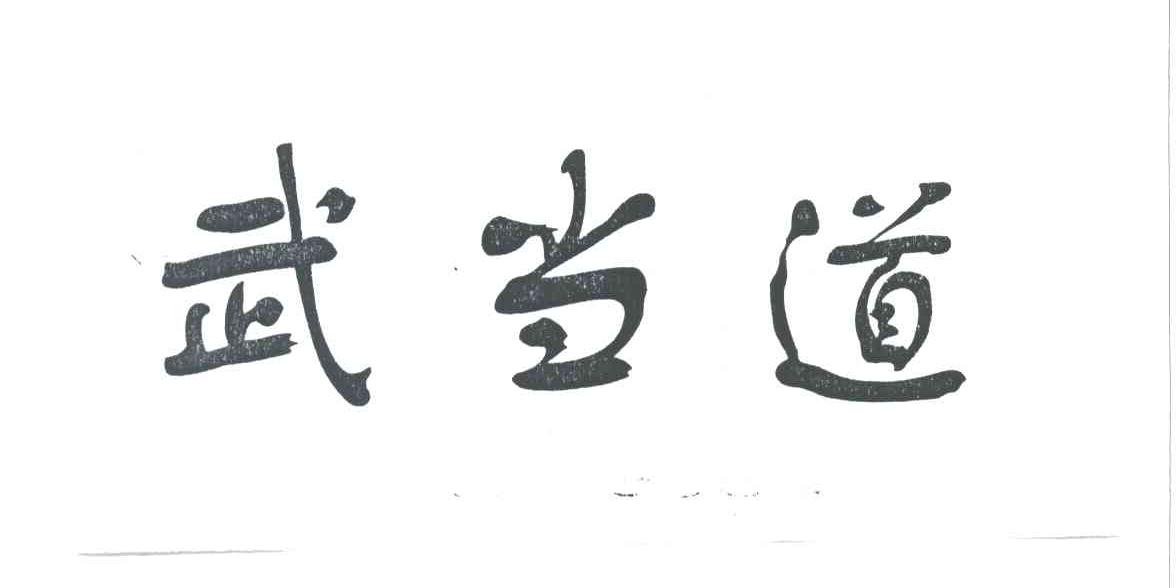 武当道